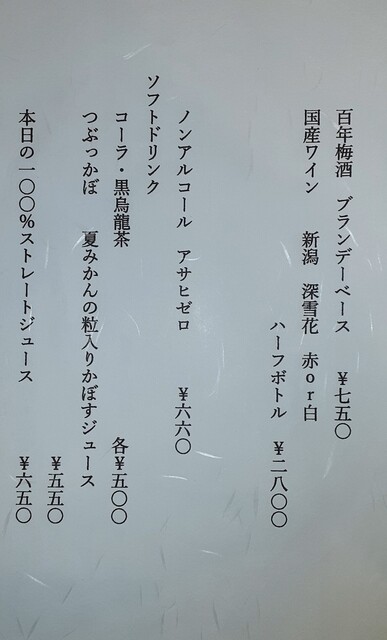 百年梅酒　ブランデーベース　¥七五〇
国産ワイン　新潟　深雪花　赤or白
ハーフボトル　¥二八〇〇
ノンアルコール　アサヒゼロ　¥六六〇
ソフトドリンク
コーラ・黒烏龍茶　各¥五〇〇
つぶっかぼ　夏みかんの粒入りかぼすジュース
¥五五〇
本日の一〇〇%ストレートジュース　¥六五〇